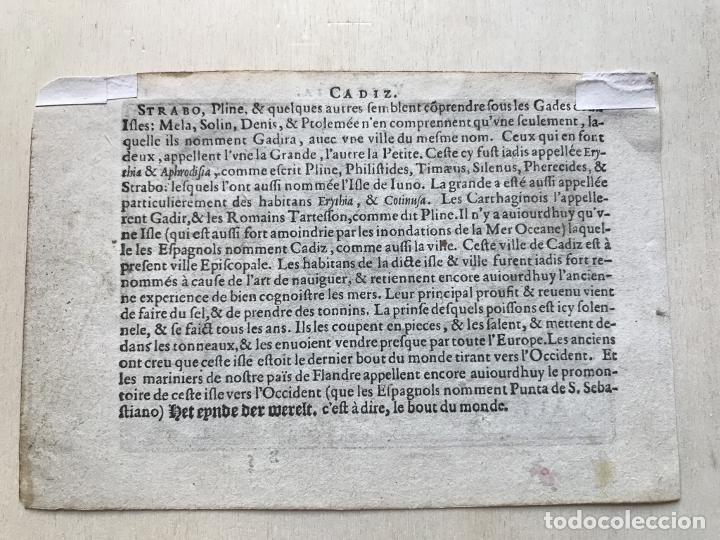 CADIZ.
STRABO, Pline, & quelques autres semblent cõprendre sous les Gades
Isles: Mela, Solin, Denis, & Ptolemée n'en comprennent qu'vne seulement, la-
quelle ils nomment Gadira, auec vne ville du mesme nom. Ceux qui en font
deux, appellent l'vne la Grande, l'autre la Petite. Ceste cy fust iadis appellée Ery-
thia & Aphrodisia, comme escrit Pline, Philistides, Timæus, Silenus, Pherecides, &
Strabo: lesquels l'ont aussi nommée l'Isle de Iuno. La grande a esté aussi appellée
particulierement des habitans Erythia, & Cotinusa. Les Carthaginois l'appelle-
rent Gadir, & les Romains Tartesson, comme dit Pline. Il n'y a auiourdhuy qu'v-
ne Isle (qui est aussi fort amoindrie par les inondations de la Mer Oceane) laquel-
le les Espagnols nomment Cadiz, comme aussi la ville. Ceste ville de Cadiz est à
present ville Episcopale. Les habitans de la dicte isle & ville furent iadis fort re-
nommés à cause de l'art de nauiguer, & retiennent encore auiourdhuy l'ancien-
ne experience de bien cognoistre les mers. Leur principal proufit & reuenu vient
de faire du sel, & de prendre des tonnins. La prinse desquels poissons est icy solen-
nele, & se faict tous les ans. Ils les coupent en pieces, & les salent, & mettent de-
dans les tonneaux, & les enuoient vendre presque par toute l'Europe. Les anciens
ont creu que ceste isle estoit le dernier bout du monde tirant vers l'Occident. Et
les mariniers de nostre païs de Flandre appellent encore auiourdhuy le promon-
toire de ceste isle vers l'Occident (que les Espagnols nomment Punta de S. Seba-
stiano) Het eynde der werelt. c'est à dire, le bout du monde.
todocoleccion
todocoleccion.net